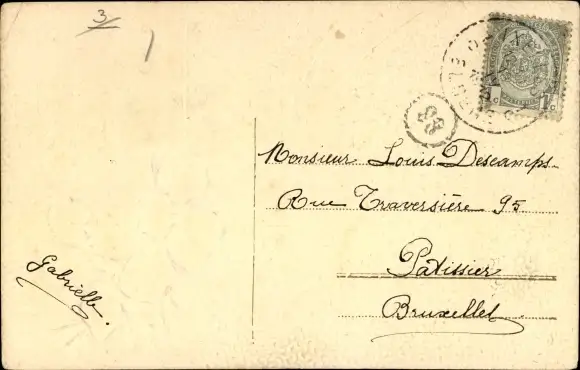 3
Monsieur Louis Descamps
Rue Traversière 95
Patissier
Bruxelles
Gabrielle.
1c